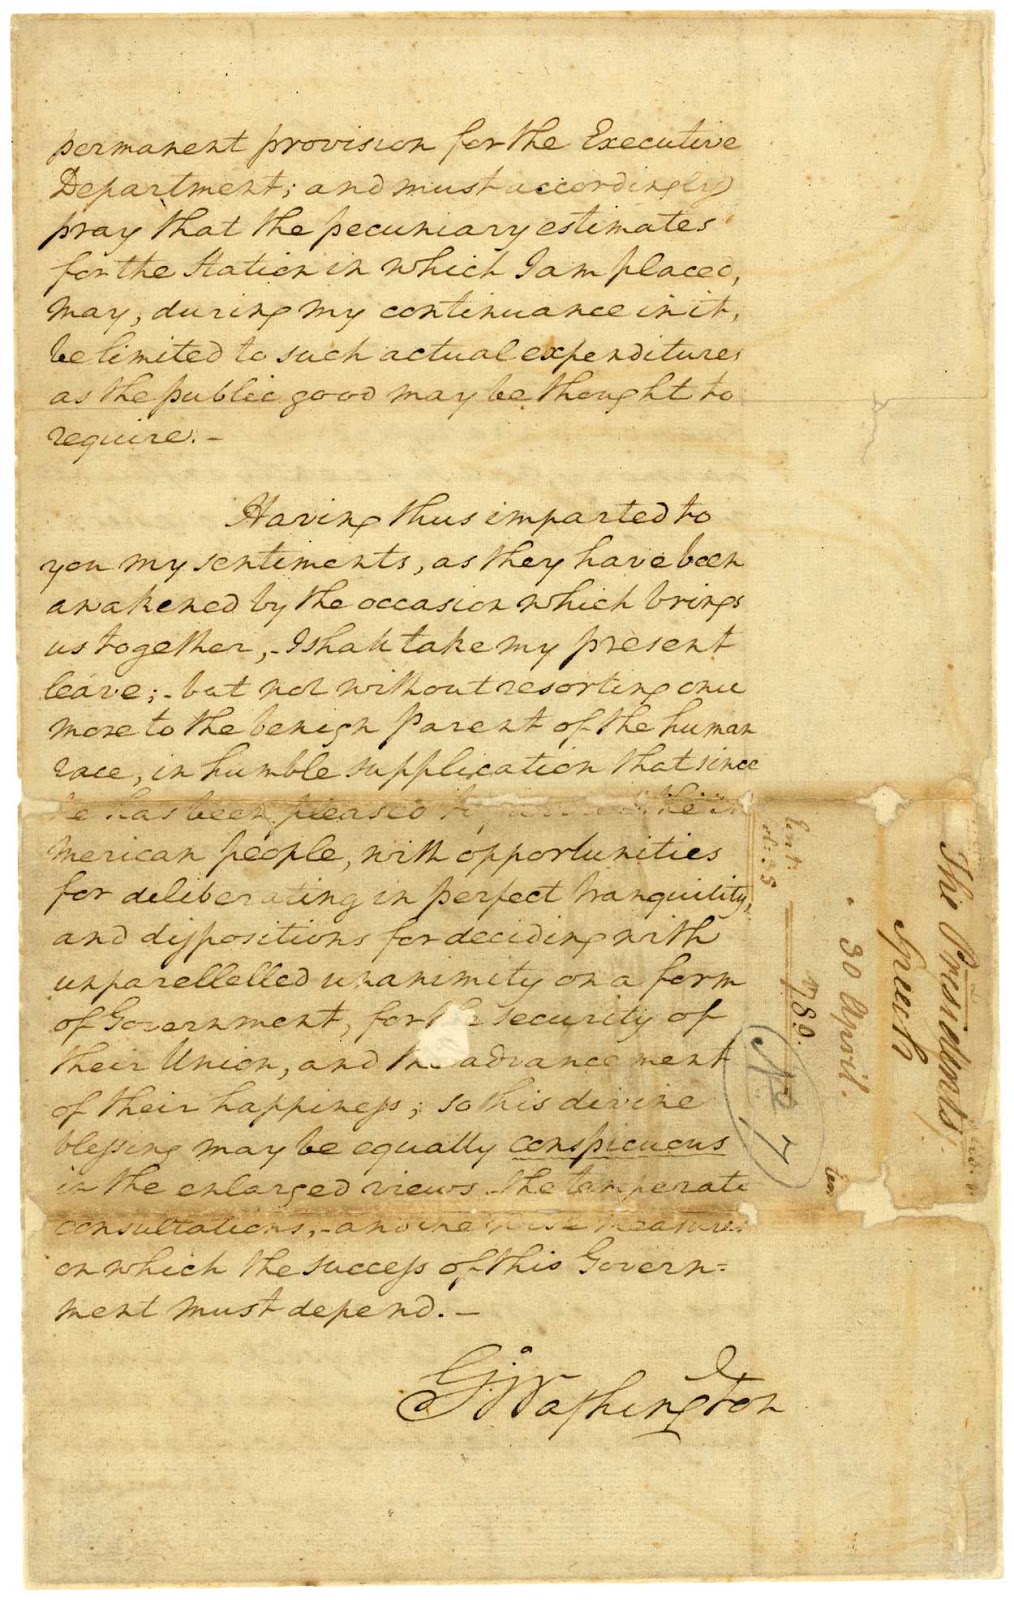 permanent provision for the Executive
Department; and must accordingly
pray that the pecuniary estimates
for the Station in which I am placed,
may, during my continuance in it,
be limited to such actual expenditures
as the public good may be thought to
require. -
Having thus imparted to
you my sentiments, as they have been
awakened by the occasion which brings
us together, - I shall take my present
leave; - but not without resorting once
more to the benign Parent of the human
race, in humble supplication that since
he has been pleased to the
merican people, with opportunities
for deliberating in perfect tranquility,
and dispositions for deciding with
unparellelled unanimity on a form
of Government, for the security of
their Union, and the advancement
of their happiness; so his divine
blessing may be equally conspicuous
in the enlarged views - the temperate
consultations, - and the wise measures
on which the success of this Govern=
ment must depend. -
Go. Washington
The Presidents
Speech
30 April
1789.
No. 7